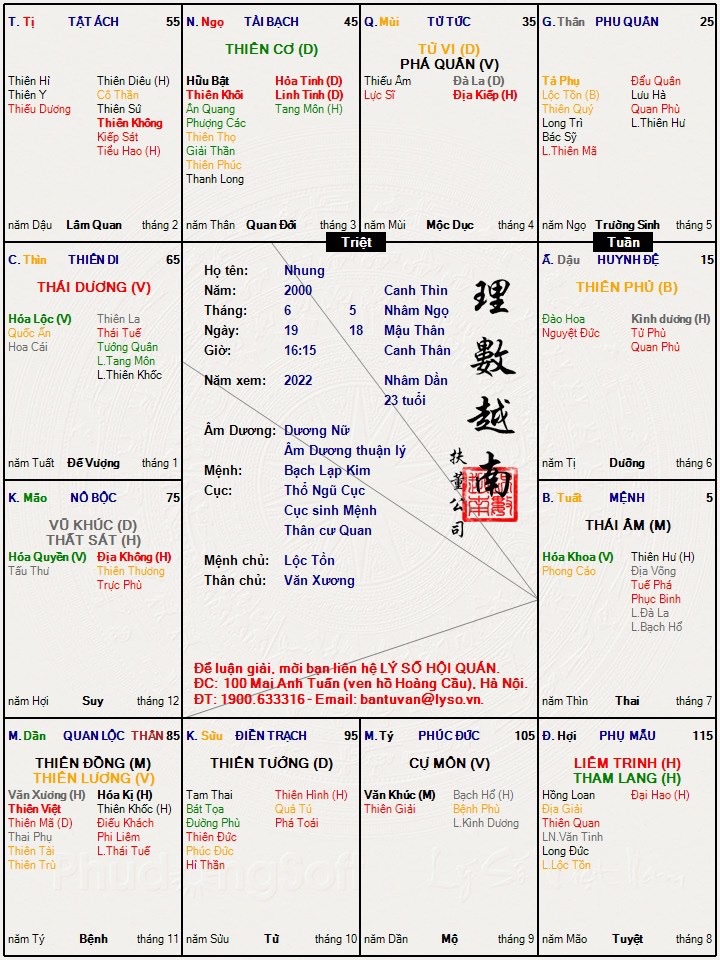 T. Tị TẬT ÁCH 55
Thiên Hỉ Thiên Diêu (H)
Thiên Y Cô Thần
Thiếu Dương Thiên Sứ
Thiên Không
Kiếp Sát
Tiểu Hao (H)
năm Dậu Lâm Quan tháng 2
N. Ngọ TÀI BẠCH 45
THIÊN CƠ (D)
Hữu Bật Hỏa Tinh (D)
Thiên Khôi Linh Tinh (D)
Ân Quang Tang Môn (H)
Phượng Các
Thiên Thọ
Giải Thần
Thiên Phúc
Thanh Long
năm Thân Quan Đới tháng 3
Q. Mùi TỬ TỨC 35
TỬ VI (D)
PHÁ QUÂN (V)
Thiếu Âm Đà La (D)
Lực Sĩ Địa Kiếp (H)
năm Mùi Mộc Dục tháng 4
G. Thân PHU QUÂN 25
Tả Phụ Đẩu Quân
Lộc Tồn (B) Lưu Hà
Thiên Quý Quan Phủ
Long Trì L.Thiên Hư
Bác Sỹ
L.Thiên Mã
năm Ngọ Trường Sinh tháng 5
Triệt
Tuần
C. Thìn THIÊN DI 65
THÁI DƯƠNG (V)
Hóa Lộc (V) Thiên La
Quốc Ấn Thái Tuế
Hoa Cái Tướng Quân
L.Tang Môn
L.Thiên Khốc
năm Tuất Đế Vượng tháng 1
Họ tên: Nhung
Năm: 2000 Canh Thìn
Tháng: 6 5 Nhâm Ngọ
Ngày: 19 18 Mậu Thân
Giờ: 16:15 Canh Thân
Năm xem: 2022 Nhâm Dần
23 tuổi
Âm Dương: Dương Nữ
Âm Dương thuận lý
Mệnh: Bạch Lạp Kim
Cục: Thổ Ngũ Cục
Cục sinh Mệnh
Thân cư Quan
Mệnh chủ: Lộc Tồn
Thân chủ: Văn Xương
理數越南
扶董公司
Để luận giải, mời bạn liên hệ LÝ SỐ HỘI QUÁN.
ĐC: 100 Mai Anh Tuấn (ven hồ Hoàng Cầu), Hà Nội.
ĐT: 1900.633316 - Email: bantuvan@lyso.vn.
Ấ. Dậu HUYNH ĐỆ 15
THIÊN PHỦ (B)
Đào Hoa Kình dương (H)
Nguyệt Đức Tử Phù
Quan Phủ
năm Tị Dưỡng tháng 6
K. Mão NÔ BỘC 75
VŨ KHÚC (D)
THẤT SÁT (H)
Hóa Quyền (V) Địa Không (H)
Tấu Thư Thiên Thương
Trực Phù
năm Hợi Suy tháng 12
B. Tuất MỆNH 5
THÁI ÂM (M)
Hóa Khoa (V) Thiên Hư (H)
Phong Cáo Địa Võng
Tuế Phá
Phục Binh
L.Đà La
L.Bạch Hổ
năm Thìn Thai tháng 7
M. Dần QUAN LỘC THÂN 85
THIÊN ĐỒNG (M)
THIÊN LƯƠNG (V)
Văn Xương (H) Hóa Kị (H)
Thiên Việt Thiên Khốc (H)
Thiên Mã (D) Điếu Khách
Thai Phụ Phi Liêm
Thiên Tài L.Thái Tuế
Thiên Trù
năm Tý Bệnh tháng 11
K. Sửu ĐIỀN TRẠCH 95
THIÊN TƯỚNG (D)
Tam Thai Thiên Hình (H)
Bát Tọa Quả Tú
Đường Phù Phá Toái
Thiên Đức
Phúc Đức
Hỉ Thần
năm Sửu Tử tháng 10
M. Tý PHÚC ĐỨC 105
CỰ MÔN (V)
Văn Khúc (M) Bạch Hổ (H)
Thiên Giải Bệnh Phù
L.Kình Dương
năm Dần Mộ tháng 9
Đ. Hợi PHỤ MẪU 115
LIÊM TRINH (H)
THAM LANG (H)
Hồng Loan Đại Hao (H)
Địa Giải
Thiên Quan
LN.Văn Tinh
Long Đức
L.Lộc Tồn
năm Mão Tuyệt tháng 8